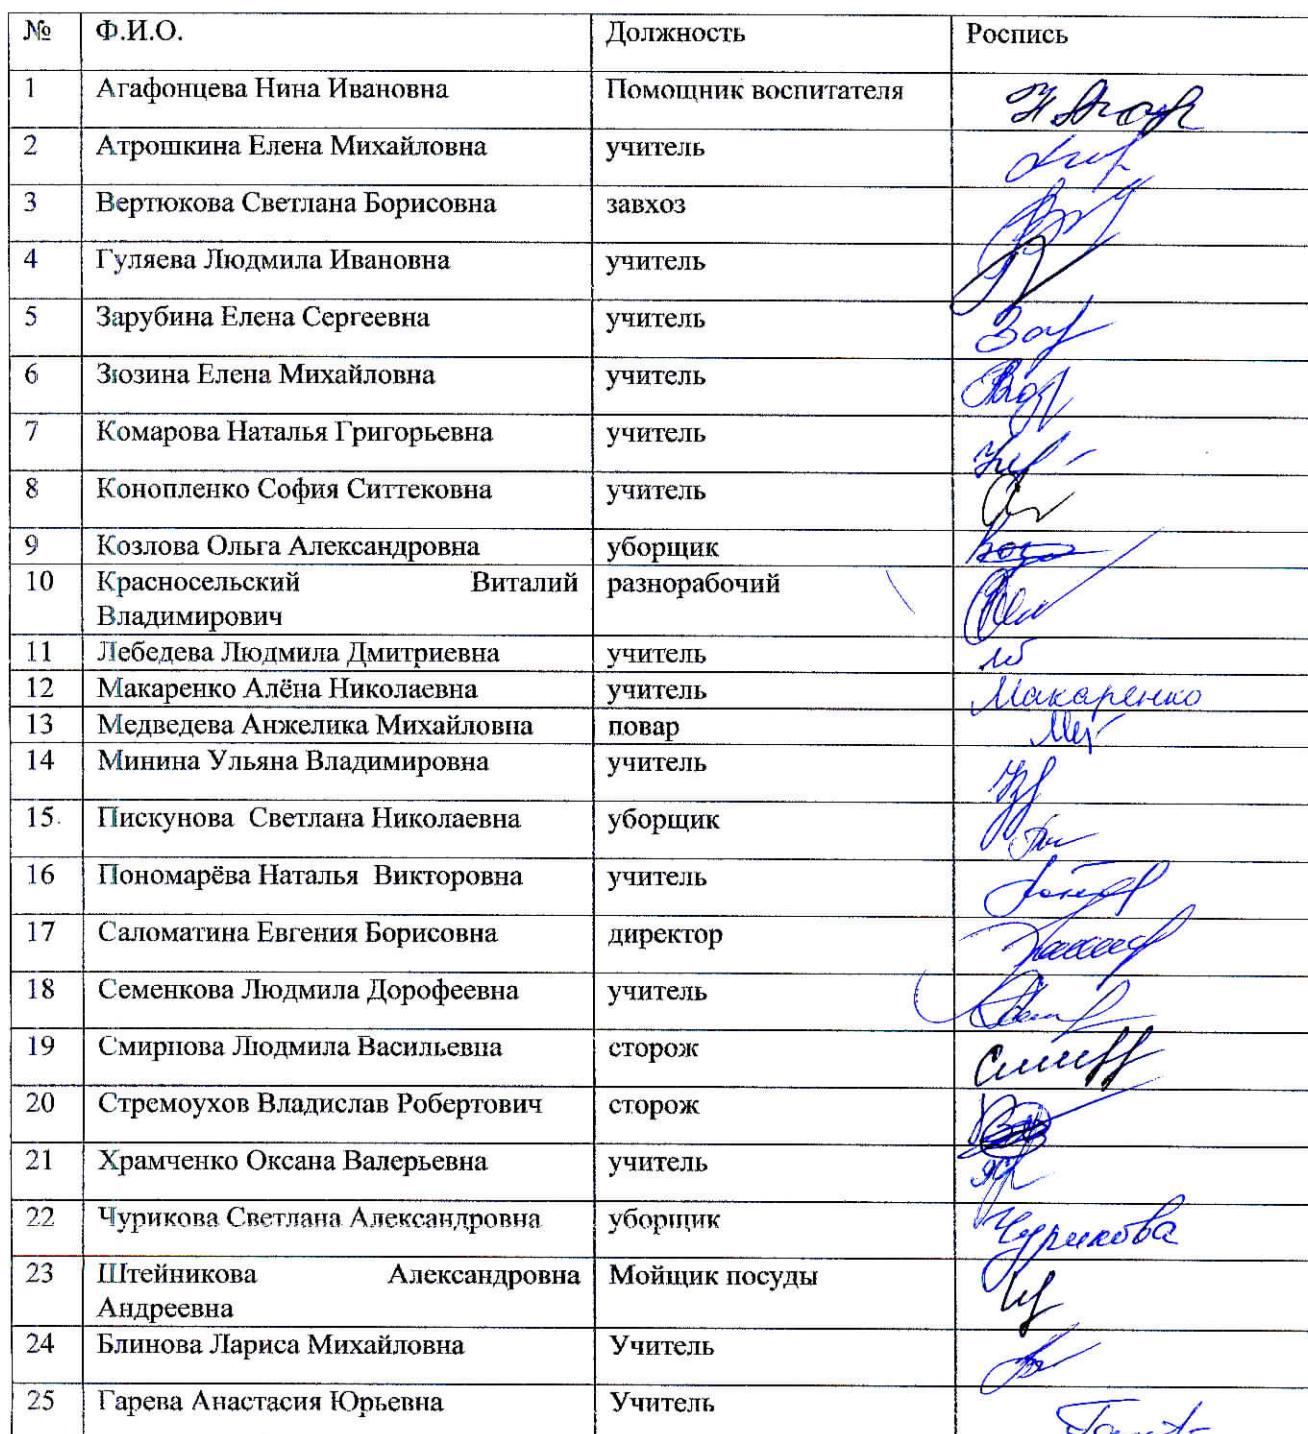 № Ф.И.О. Должность Роспись
1 Агафонцева Нина Ивановна Помощник воспитателя
2 Атрошкина Елена Михайловна учитель
3 Вертюкова Светлана Борисовна завхоз
4 Гуляева Людмила Ивановна учитель
5 Зарубина Елена Сергеевна учитель
6 Зюзина Елена Михайловна учитель
7 Комарова Наталья Григорьевна учитель
8 Конопленко София Ситтековна учитель
9 Козлова Ольга Александровна уборщик
10 Красносельский Виталий разнорабочий
Владимирович
11 Лебедева Людмила Дмитриевна учитель
12 Макаренко Алёна Николаевна учитель Макаренко
13 Медведева Анжелика Михайловна повар
14 Минина Ульяна Владимировна учитель
15 Пискунова Светлана Николаевна уборщик
16 Пономарёва Наталья Викторовна учитель
17 Саломатина Евгения Борисовна директор
18 Семенкова Людмила Дорофеевна учитель
19 Смирнова Людмила Васильевна сторож
20 Стремоухов Владислав Робертович сторож
21 Храмченко Оксана Валерьевна учитель
22 Чурикова Светлана Александровна уборщик Чурикова
23 Штейникова Александровна Мойщик посуды
Андреевна
24 Блинова Лариса Михайловна Учитель
25 Гарева Анастасия Юрьевна Учитель